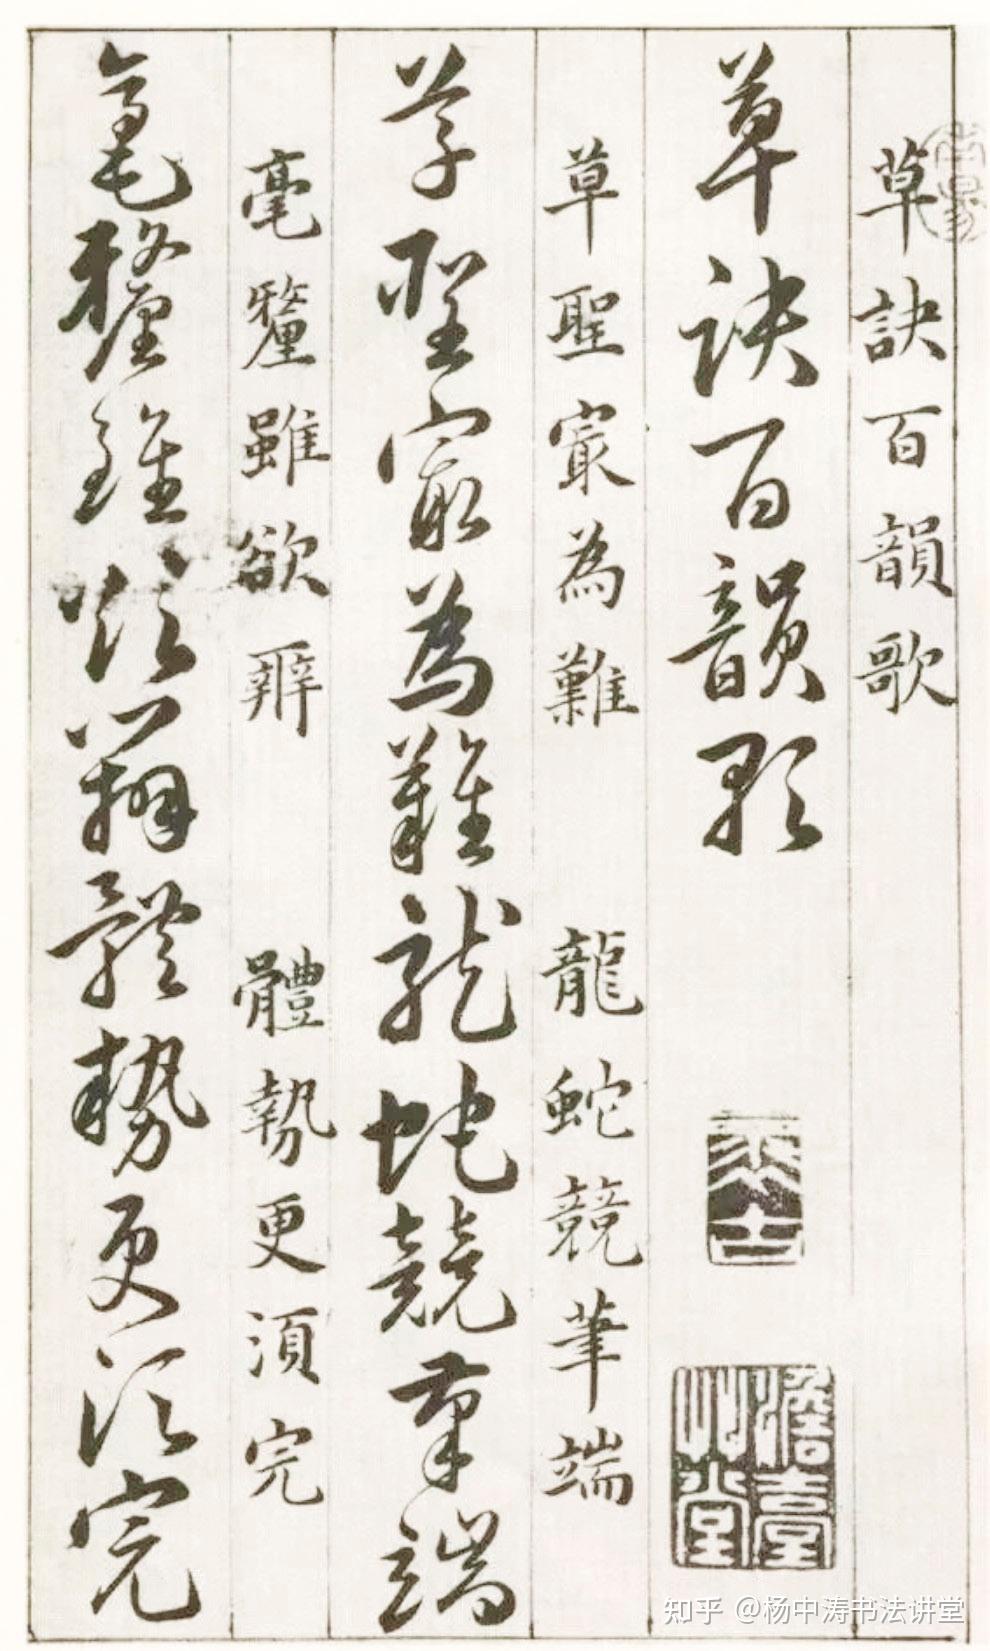 草訣百韻歌
草訣百韻歌
草聖㝡為難 龍蛇競筆端
草聖㝡為難龍蛇競筆端
毫釐雖欲辨 體勢更須完
毫釐雖欲辨體勢更須完
知乎 @杨中涛书法讲堂